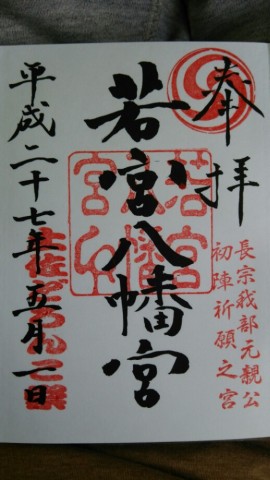 奉拝
長宗我部元親公
初陣祈願之宮
若宮八幡宮
若宮八幡宮
平成二十七年五月一日
土佐どろんこ祭